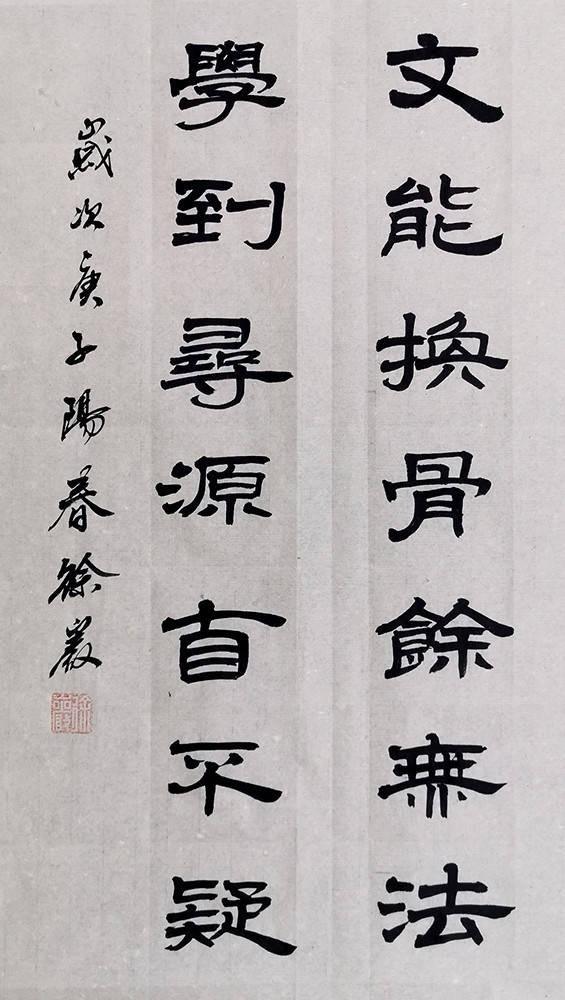 文能換骨餘無法
學到尋源自不疑
歲次庚子陽春徐嚴